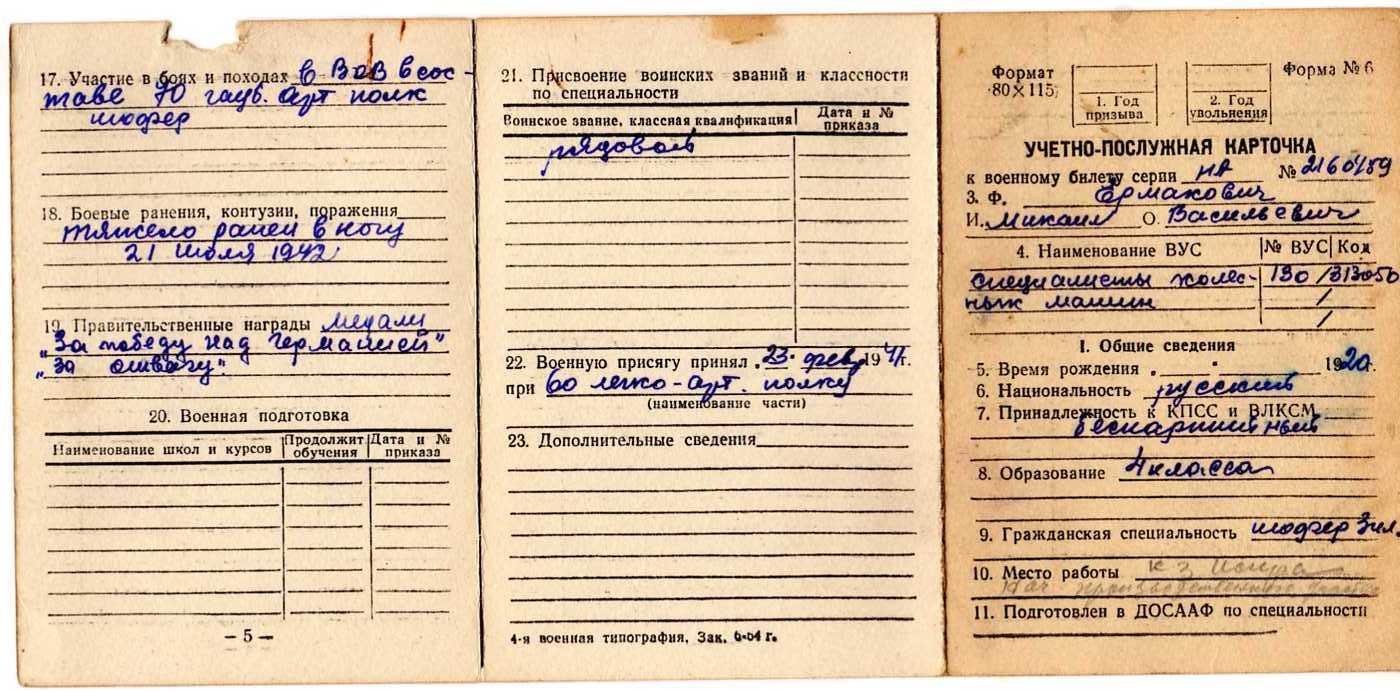 17. Участие в боях и походах в ВОВ в сос-
таве 70 гауб. арт полк
шофер
18. Боевые ранения, контузии, поражения
тяжело ранен в ногу
21 июля 1942
19. Правительственные награды медали
"За победу над Германией"
"За отвагу"
20. Военная подготовка
Наименование школ и курсов Продолжит. обучения Дата и № приказа
— 5 —
21. Присвоение воинских званий и классности
по специальности
Воинское звание, классная квалификация Дата и № приказа
рядовой
22. Военную присягу принял „23" фев. 1941г.
при 60 легко-арт. полку
(наименование части)
23. Дополнительные сведения
4-я военная типография, Зак. 6-64 г.
Формат
80×115
1. Год
призыва
2. Год
увольнения
Форма № 6
УЧЕТНО-ПОСЛУЖНАЯ КАРТОЧКА
к военному билету серии НА № 2160459
3. Ф. Ермакович
И. Михаил О. Васильевич
4. Наименование ВУС № ВУС Код
специалисты колес- 130 /313050
ных машин /
/
I. Общие сведения
5. Время рождения „ " 1920г.
6. Национальность русский
7. Принадлежность к КПСС и ВЛКСМ
беспартийный
8. Образование 4 класса
9. Гражданская специальность шофер 3 кл.
10. Место работы к-з Искра
производственного
11. Подготовлен в ДОСААФ по специальности